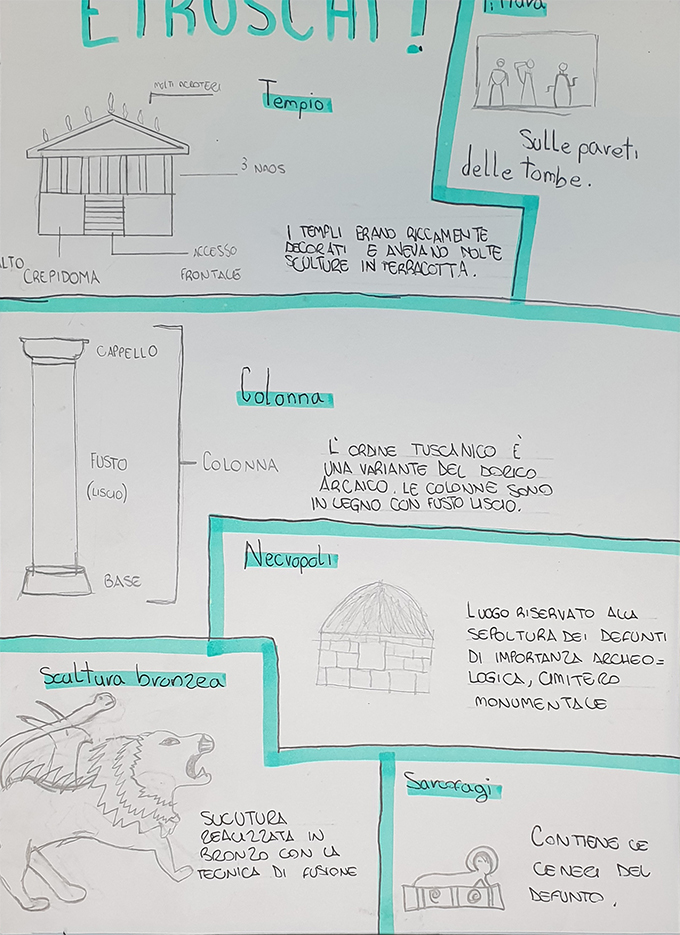 ETRUSCHI!
Pittura
Sulle pareti
delle tombe.
MOLTI ACROTERI
Tempio
3 NAOS
ALTO
CREPIDOMA
ACCESSO
FRONTALE
I TEMPLI ERANO RICCAMENTE
DECORATI E AVEVANO MOLTE
SCULTURE IN TERRACOTTA.
CAPPELLO
FUSTO
(LISCIO)
BASE
COLONNA
Colonna
L'ORDINE TUSCANICO È
UNA VARIANTE DEL DORICO
ARCAICO. LE COLONNE SONO
IN LEGNO CON FUSTO LISCIO.
Necropoli
LUOGO RISERVATO ALLA
SEPOLTURA DEI DEFUNTI
DI IMPORTANZA ARCHEO=
LOGICA, CIMITERO
MONUMENTALE
Scultura bronzea
SUCUTURA
REALIZZATA IN
BRONZO CON LA
TECNICA DI FUSIONE
Sarcofagi
CONTIENE LE
CENERI DEL
DEFUNTO.